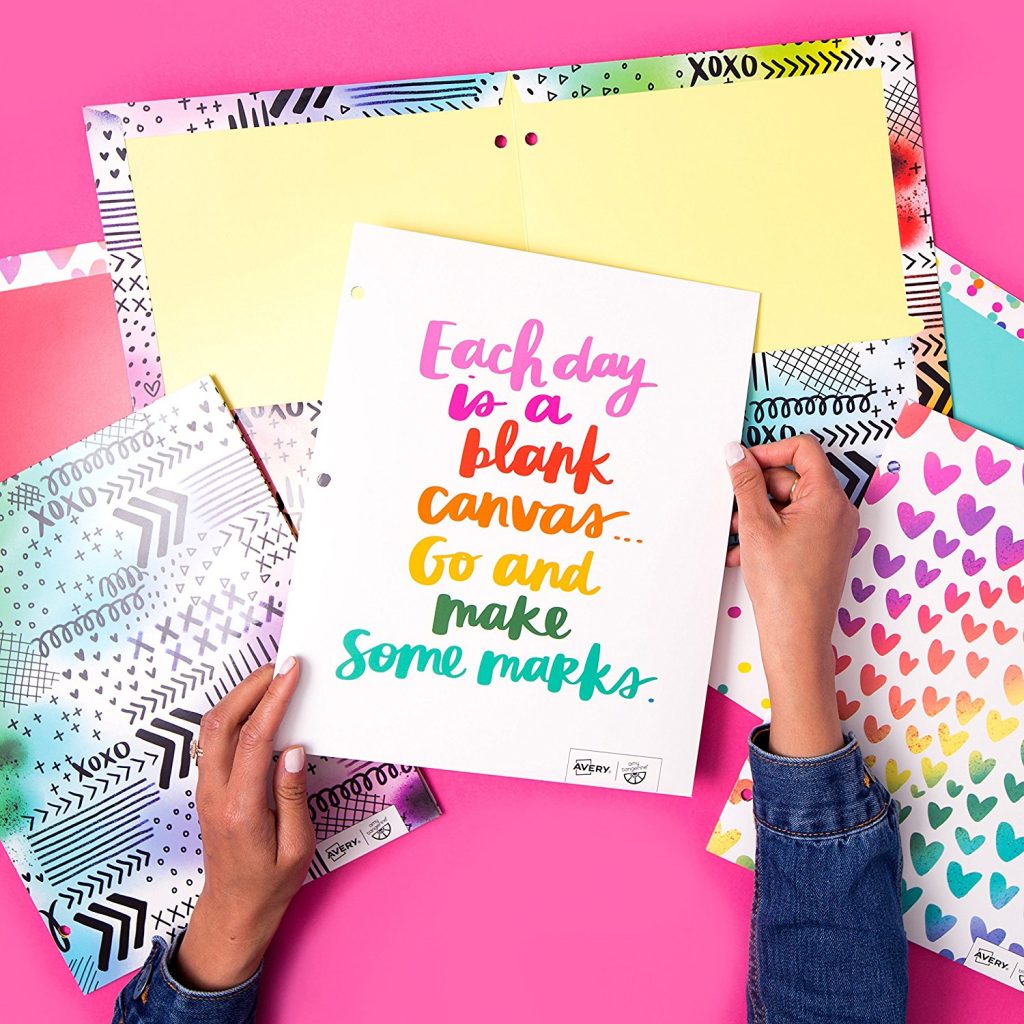 XOXO
Each day
is a
blank
canvas...
Go and
make
Some marks.
AVERY
amy
tangerine
XOXO
XOXO
XOXO
AVERY
amy
tangerine
AVERY